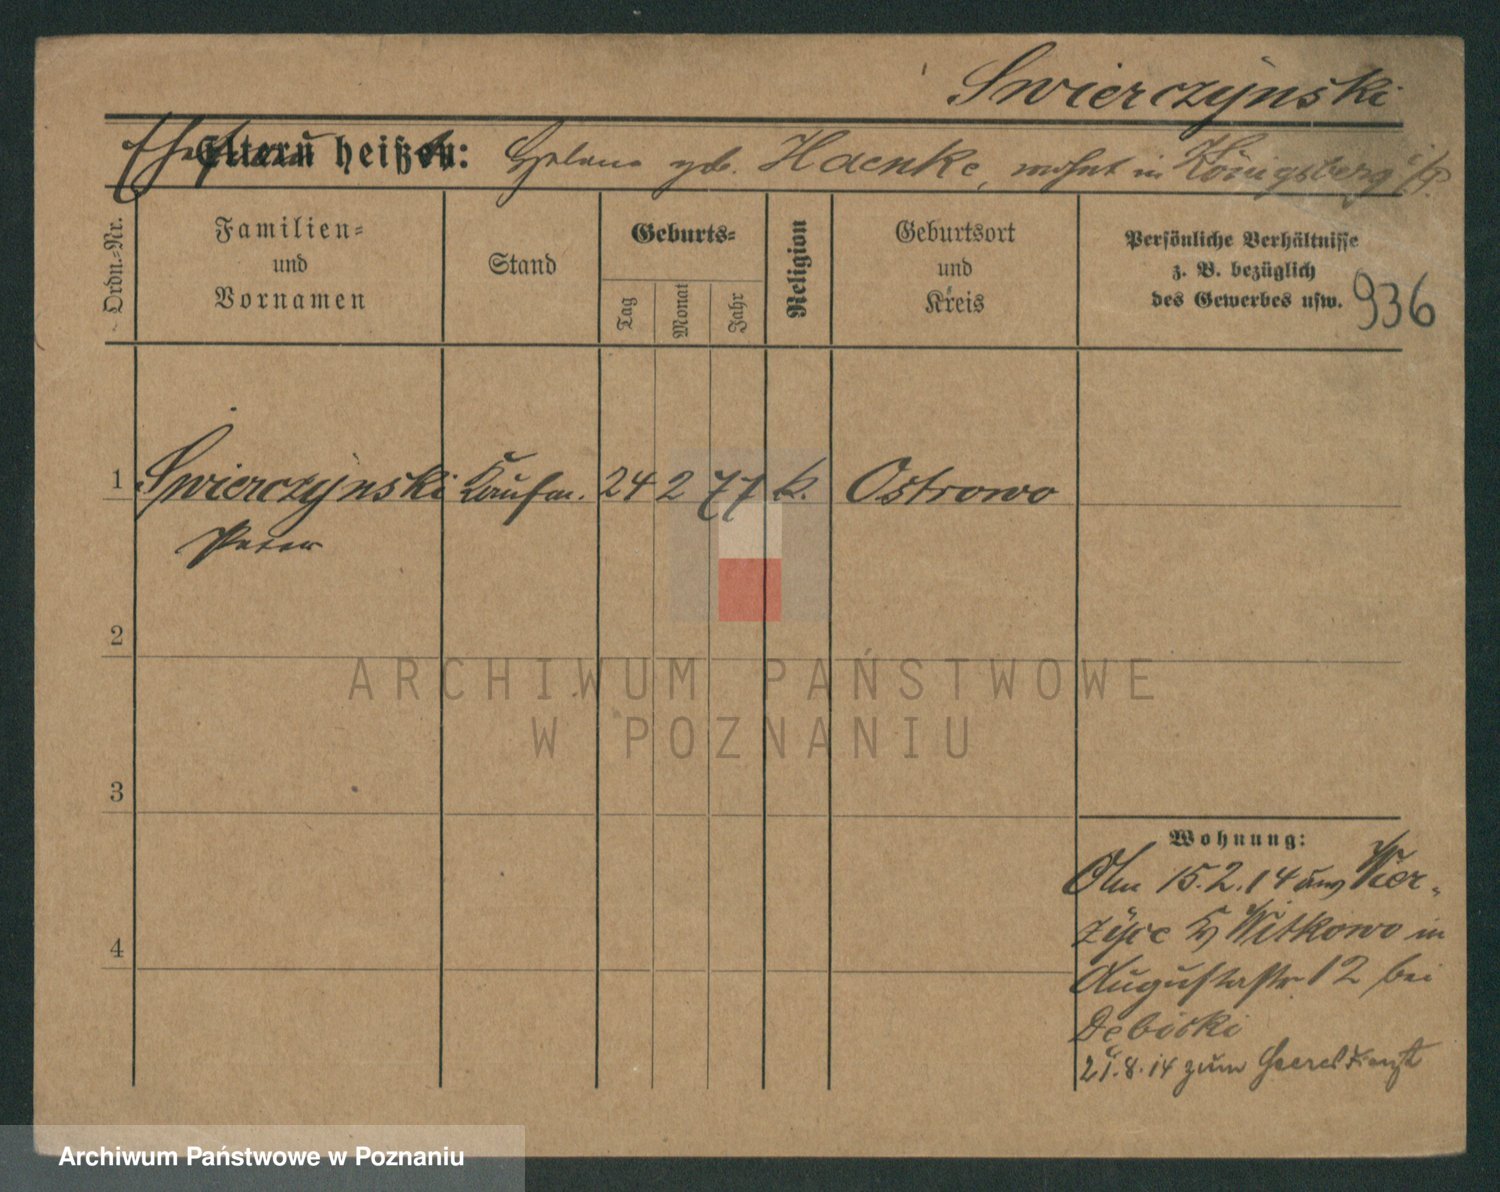 Swierczynski
Eltern heißen: Helene geb. Haenke, wohnt in Königsberg i/P.
Ordn.-Nr.
Familien-
und
Vornamen
Stand
Geburts-
Tag
Monat
Jahr
Religion
Geburtsort
und
Kreis
Persönliche Verhältnisse
z. B. bezüglich
des Gewerbes usw.
936
1 Swierczynski Kaufm. 24 2 77 k. Ostrowo
Peter
2
3
4
Wohnung:
Am 15.2.14 aus Wier-
zyce Witkowo in
Augustastr 12 bei
Debicki
21.8.14 zum Heeresdienst
ARCHIWUM PAŃSTWOWE
W POZNANIU
Archiwum Państwowe w Poznaniu